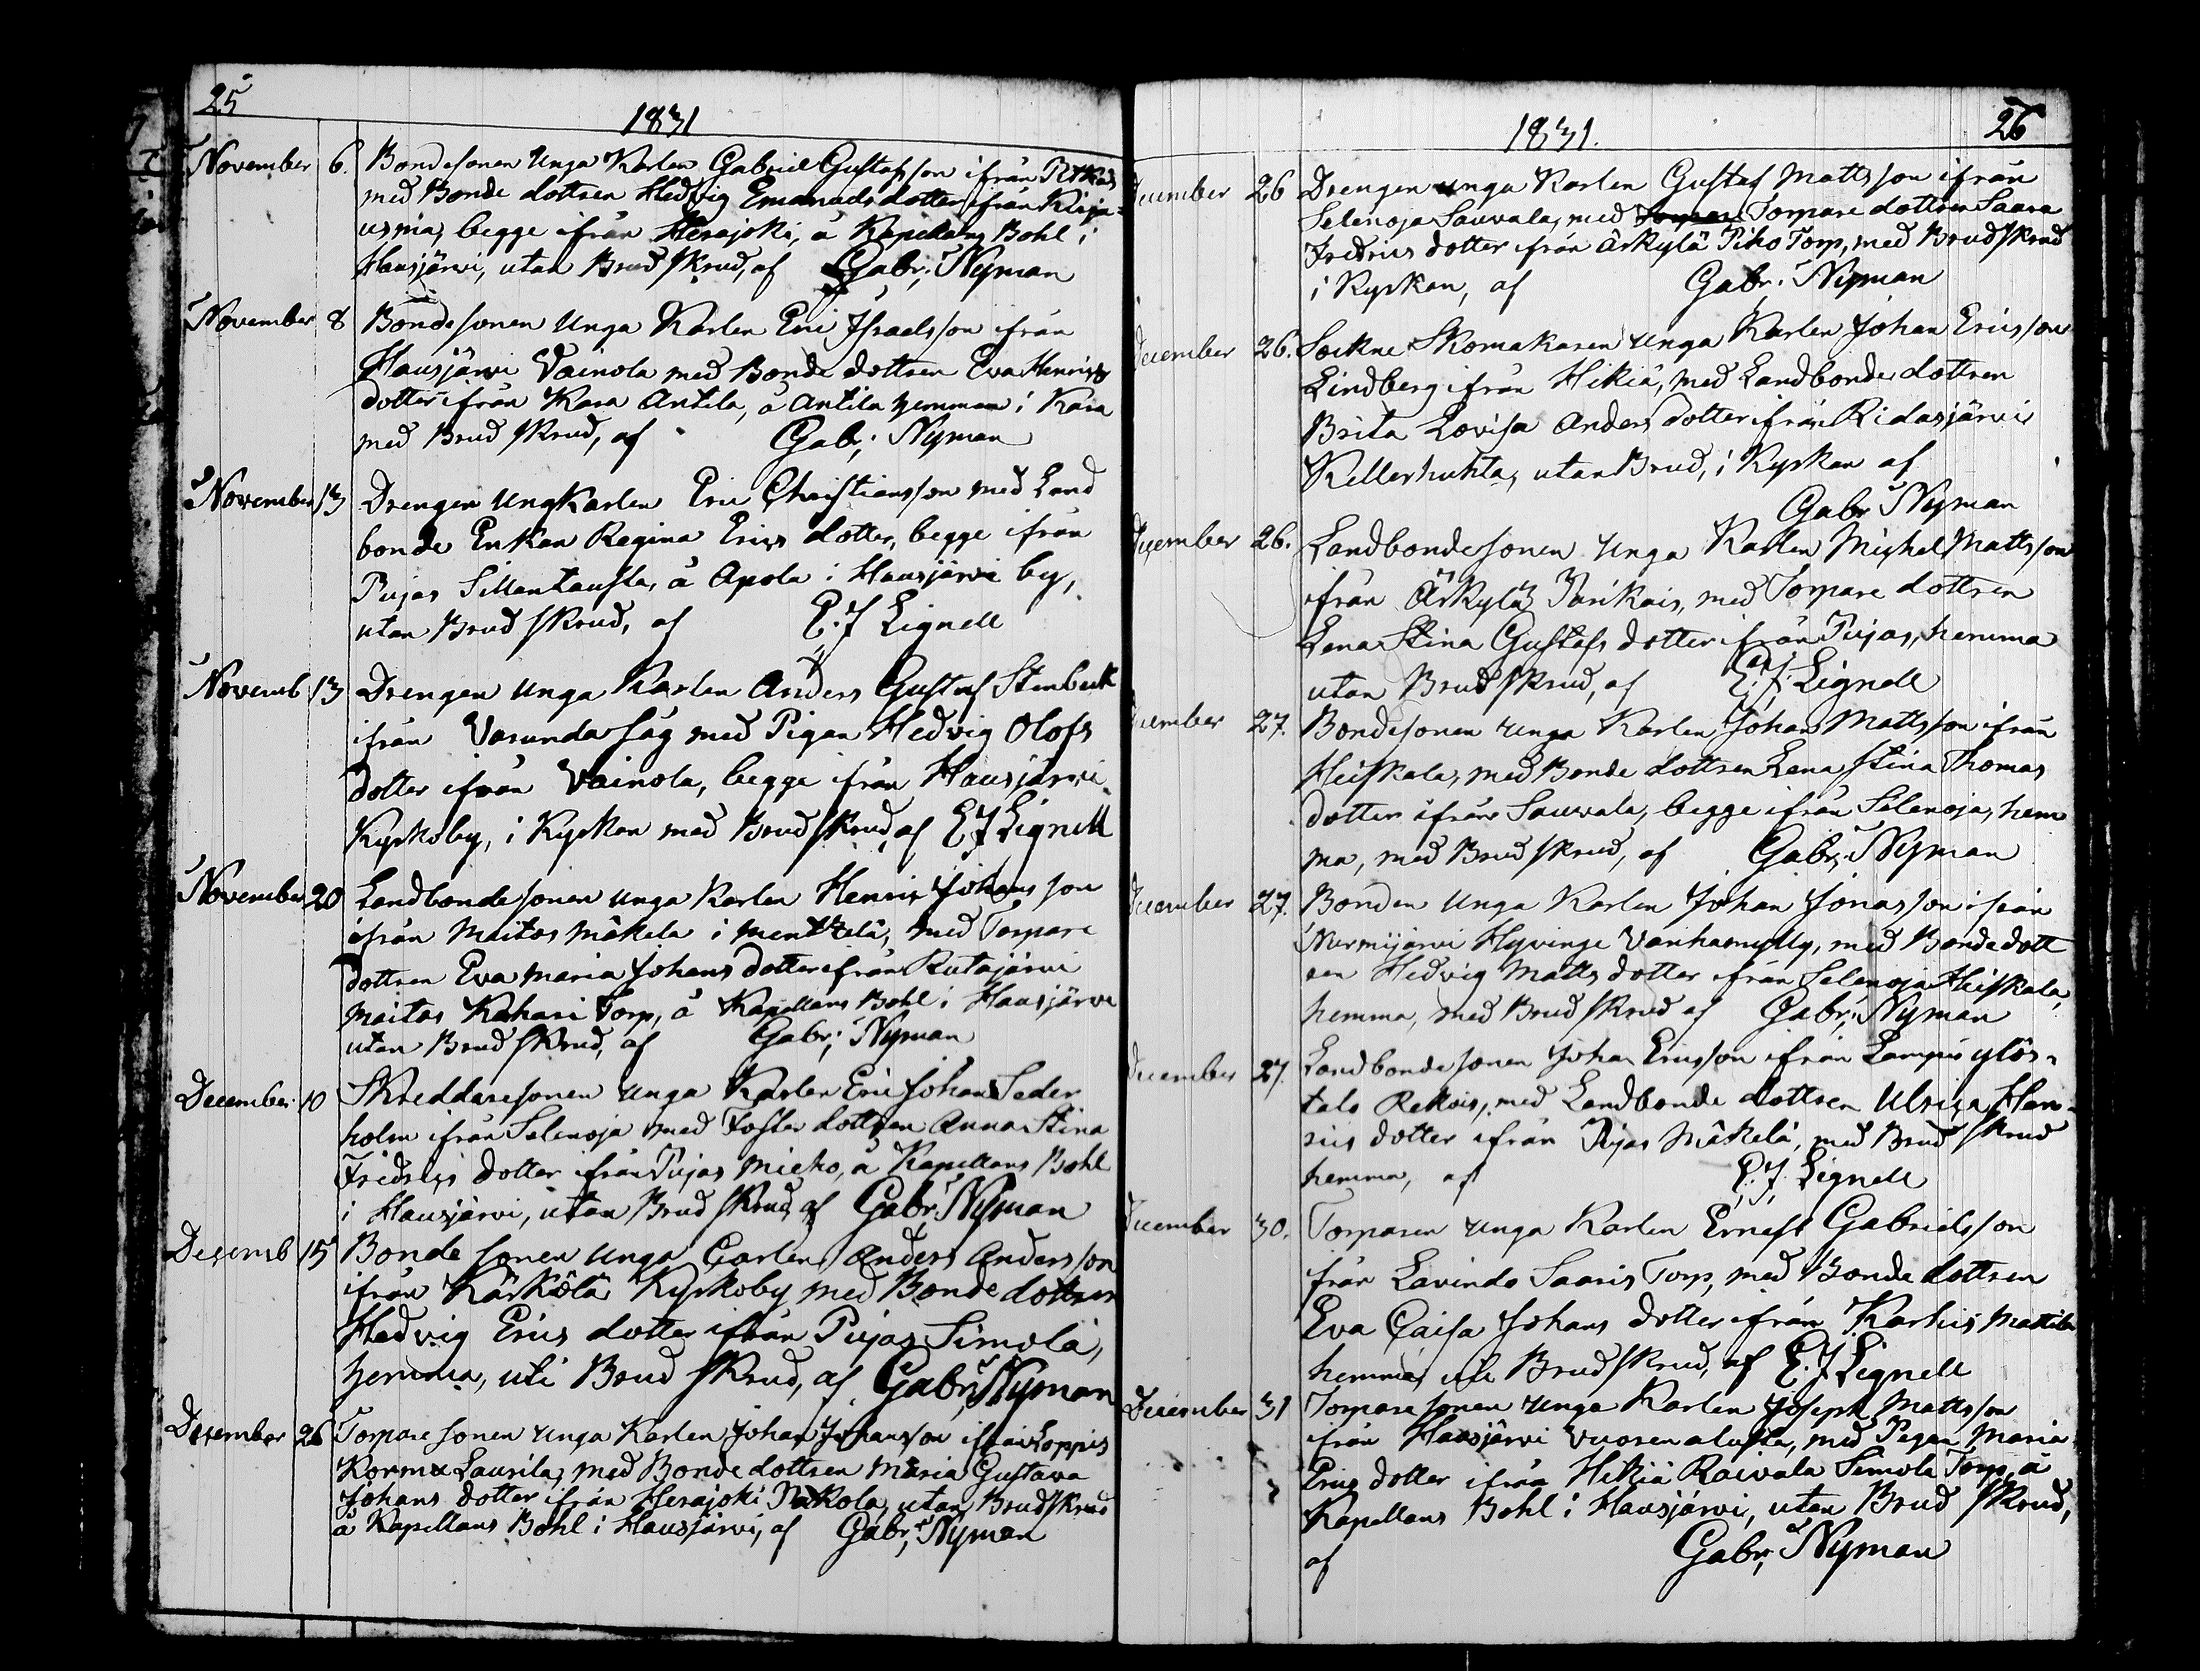 25
1831
November 6. Bondesonen Unga Karlen Gabriel Gustafsson ifrån
med Bonde dottren Hedvig Emanuels dotter ifrån Kirja-
usmia, begge ifrån Herajoki, å Kapellans Bohl i
Hausjärvi, utan Brud skrud, af Gabr; Nyman
November 8 Bondesonen Unga Karlen Eric Israelsson ifrån
Hausjärvi Vainola med Bonde dottren Eva Henrics
dotter ifrån Kara Antila, å Antila hemman i Kara
med Brud skrud, af Gabr; Nyman
November 13 Drengen Ungkarlen Eric Christiansson med Land
bonde Enkan Regina Erics dotter, begge ifrån
Pujas Sillantausta, å Apola i Hausjärvi by,
utan Brud skrud, af E. J Lignell
Novemb 13 Drengen unga Karlen Anders Gustaf Stenbeck
ifrån Varunda Såg med Pigan Hedvig Olofs
dotter ifrån Vainola, begge ifrån Hausjärvi
Kyrkoby, i Kyrkan med Brud skrud, af E J Lignell
November 20 Landbonde sonen unga Karlen Henric Johans son
ifrån Maitos Mäkela i Menttelä, med Torpare
dottren Eva Maria Johans dotter ifrån Rutajärvi
Maitos Kahari Torp, å Kapellans Bohl i Hausjärvi
utan Brud skrud, af Gabr; Nyman
December 10 Skreddaresonen unga Karlen Eric Johan Seder
holm ifrån Selenoja med Foster dottren Anna Stina
Fredrics dotter ifrån Pujas Mieho, å Kapellans Bohl
i Hausjärvi, utan Brud skrud, af Gabr; Nyman
Desemb 15 Bonde sonen unga Carlen Anders Andersson
ifrån Kärkölä Kyrkoby med Bonde dottren
Hedvig Erics dotter ifrån Pujas Simola,
hemma, uti Brud skrud, af Gabr; Nyman
Desember 26 Torpare sonen unga Karlen Johan Johansson ifrån Loppis
Kormu Laurila, med Bonde dottren Maria Gustava
Johans dotter ifrån Herajoki Nikola, utan Brudskrud
å Kapellans Bohl i Hausjärvi, af Gabr; Nyman
26
1831.
December 26 Drengen unga Karlen Gustaf Mattsson ifrån
Selenoja Sauvala, med Torpare dottren Saara
Fredrics dotter ifrån Ärkylä Piho Torp, med Brudskrud
i Kyrkan, af Gabr; Nyman
December 26. Sockne Skomakaren unga Karlen Johan Ericsson
Lindberg ifrån Hikiä, med Landbonde dottren
Brita Lovisa Anders dotter ifrån Ridasjärvi
Kellerhuhta, utan Brud, i Kyrkan af
Gabr Nyman
December 26. Landbondesonen unga Karlen Michel Mattsson
ifrån Ärkylä Parikais, med Torpare dottren
Lena Stina Gustafs dotter ifrån Pujas, hemma
utan Brud skrud, af E. J. Lignell
December 27. Bondesonen unga Karlen Johan Mattsson ifrån
Heiskala, med Bonde dottren Lena Stina Thomas
dotter ifrån Sauvala, begge ifrån Selenoja, hem
ma, med Brud skrud, af Gabr; Nyman
December 27. Bonden Unga Karlen Johan Jonasson ifrån
Nurmijärvi Hyvinge Vanhamylly, med Bonde dott
ren Hedvig Matts dotter ifrån Selenoja Heiskala,
hemma, med Brud skrud af Gabr; Nyman
December 27. Landbonde sonen Johan Ericsson ifrån Lampis ylös-
talo Rekois, med Landbonde dottren Ulrica Hen-
rics dotter ifrån Pujas Mäkelä, med Brud skrud
hemma, af E. J. Lignell
December 30. Torparen unga Karlen Ernest Gabrielsson
ifrån Lavindo Saaris Torp, med Bonde dottren
Eva Caisa Johans dotter ifrån Karhis Mattila
hemma, uti Brud skrud, af E. J Lignell
December 31 Torpare sonen unga Karlen Joseph Mattsson
ifrån Hausjärvi Vuorenalusta, med Pigan Maria
Erics dotter ifrån Hikiä Raivala Simola Torp, å
Kapellans Bohl i Hausjärvi, utan Brud skrud,
af Gabr; Nyman